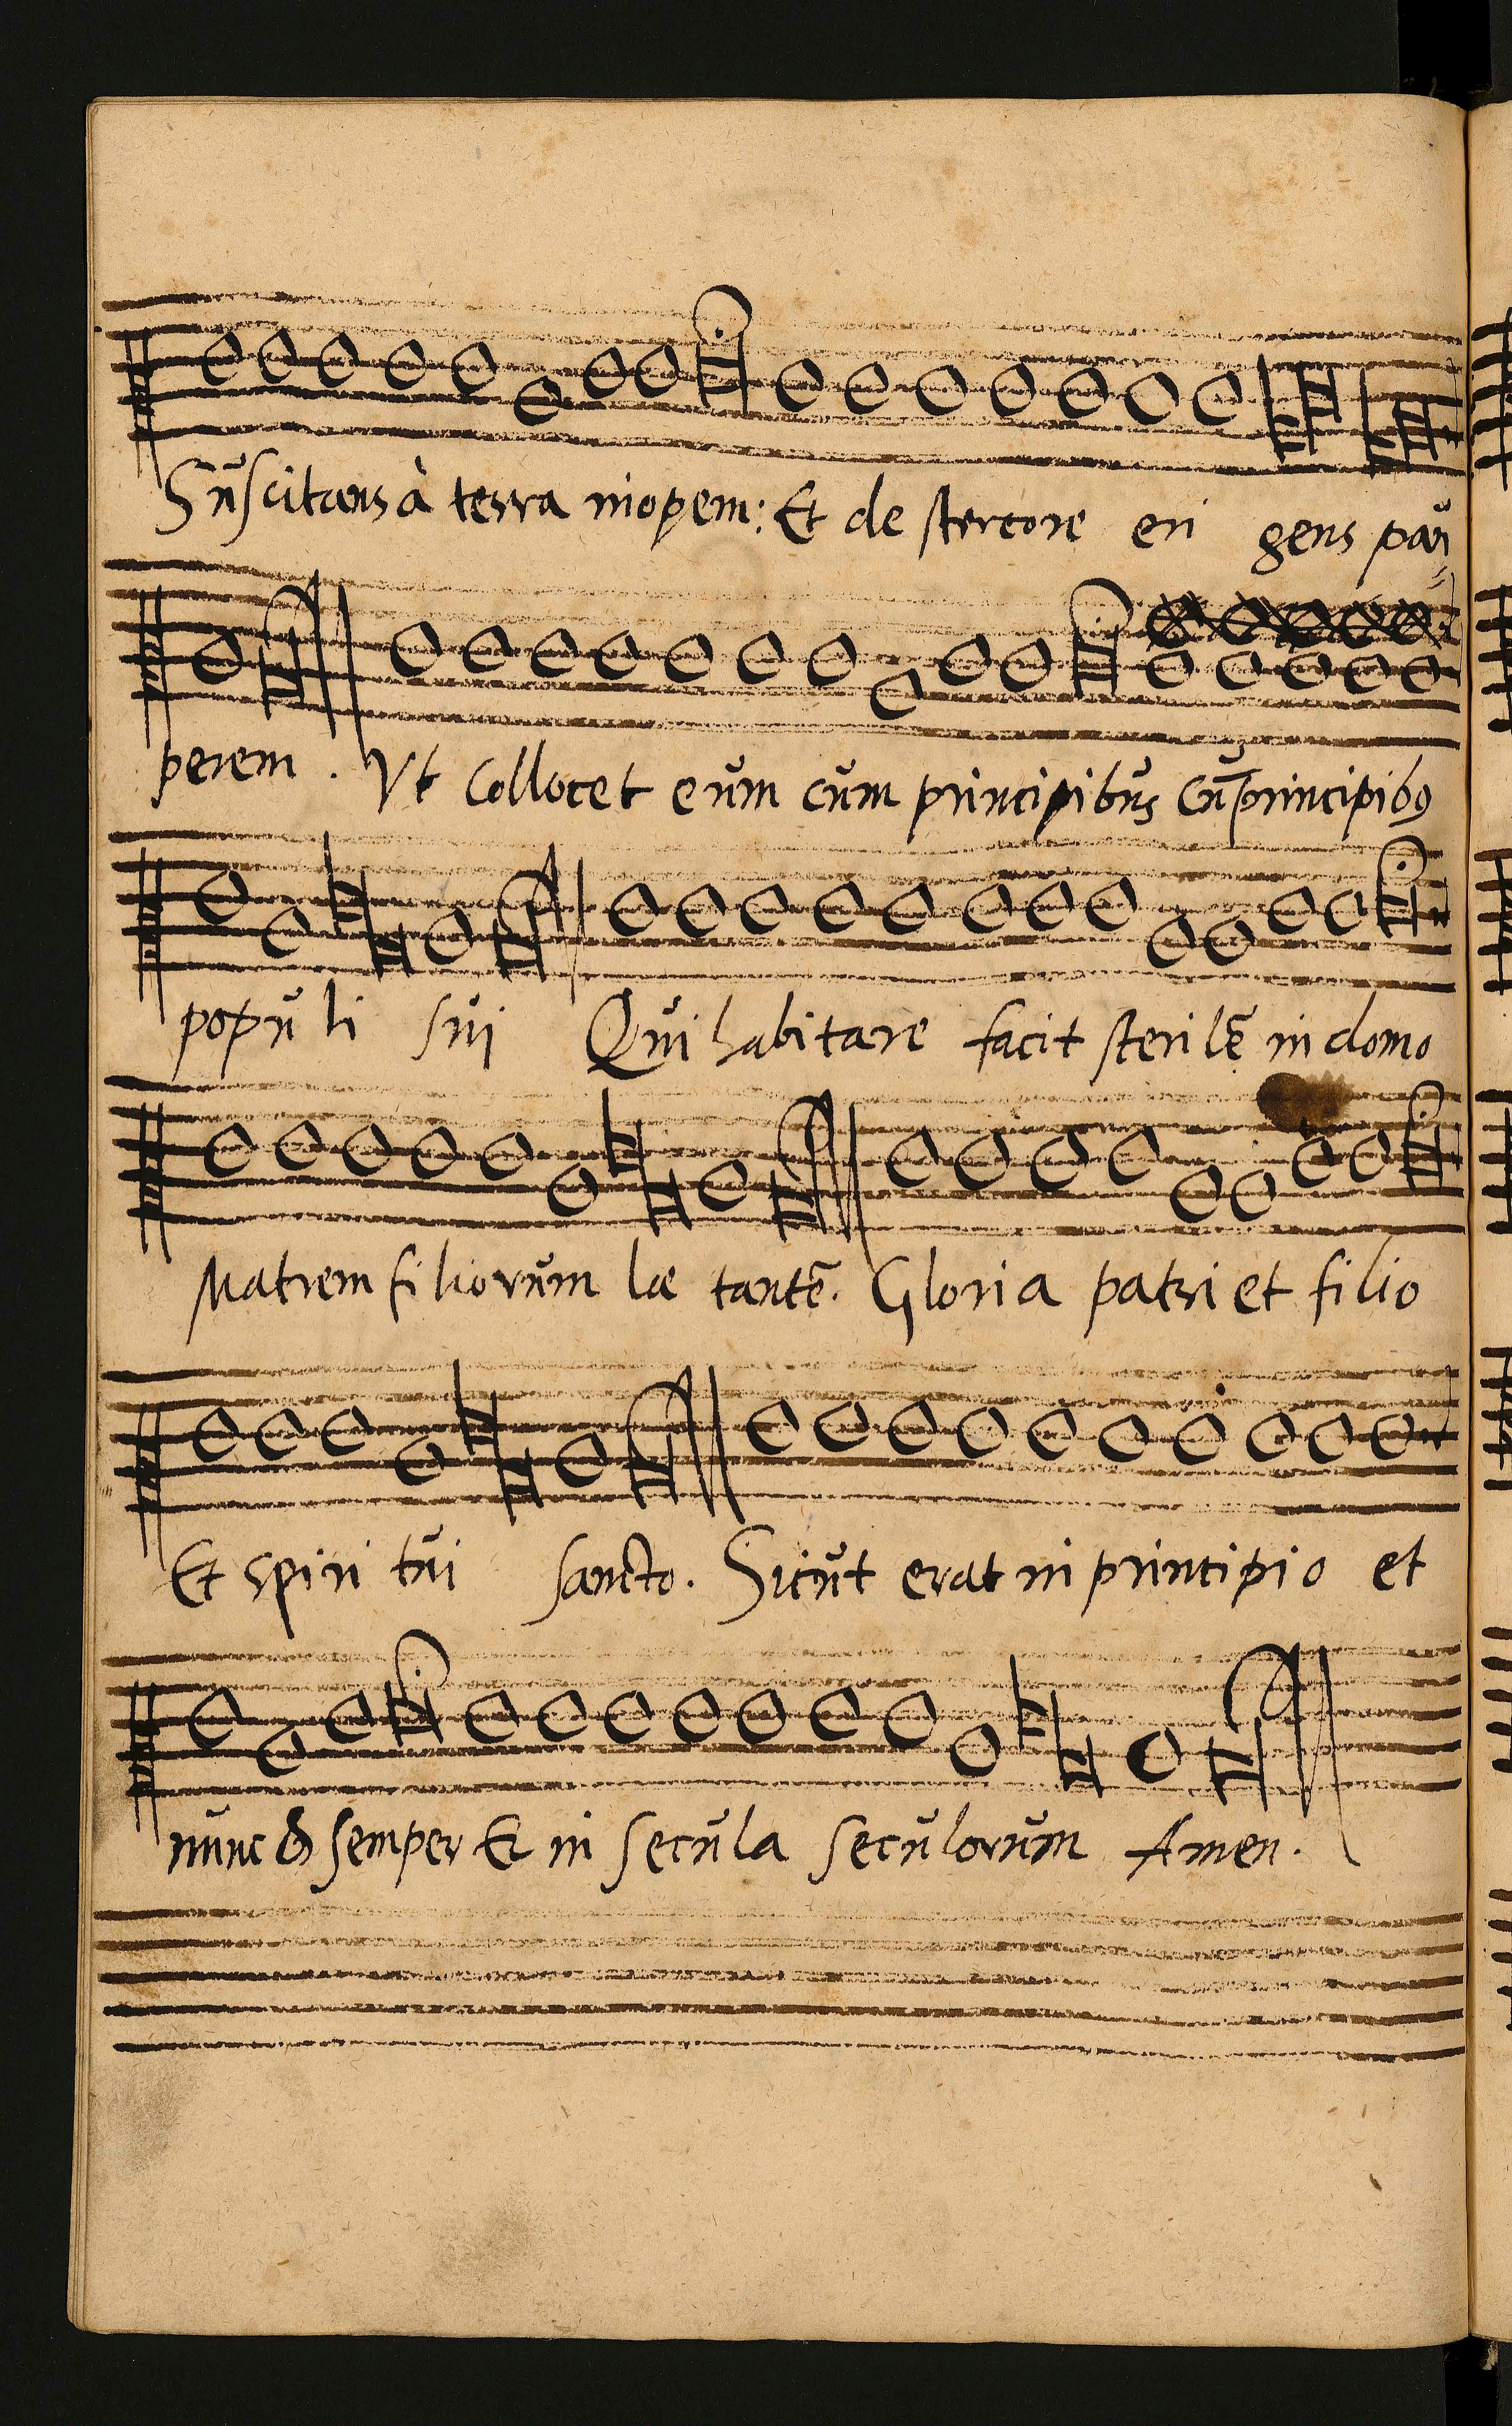 Suscitans à terra inopem: Et de stercore eri gens pau
perem. Vt collocet eum cum principibus cū principibꝰ
popu li sui Qui habitare facit sterilē in domo
Matrem filiorum læ tantē. Gloria patri et filio
Et spiri tui sancto. Sicut erat in principio et
nunc & semper Et in secula seculorum Amen.